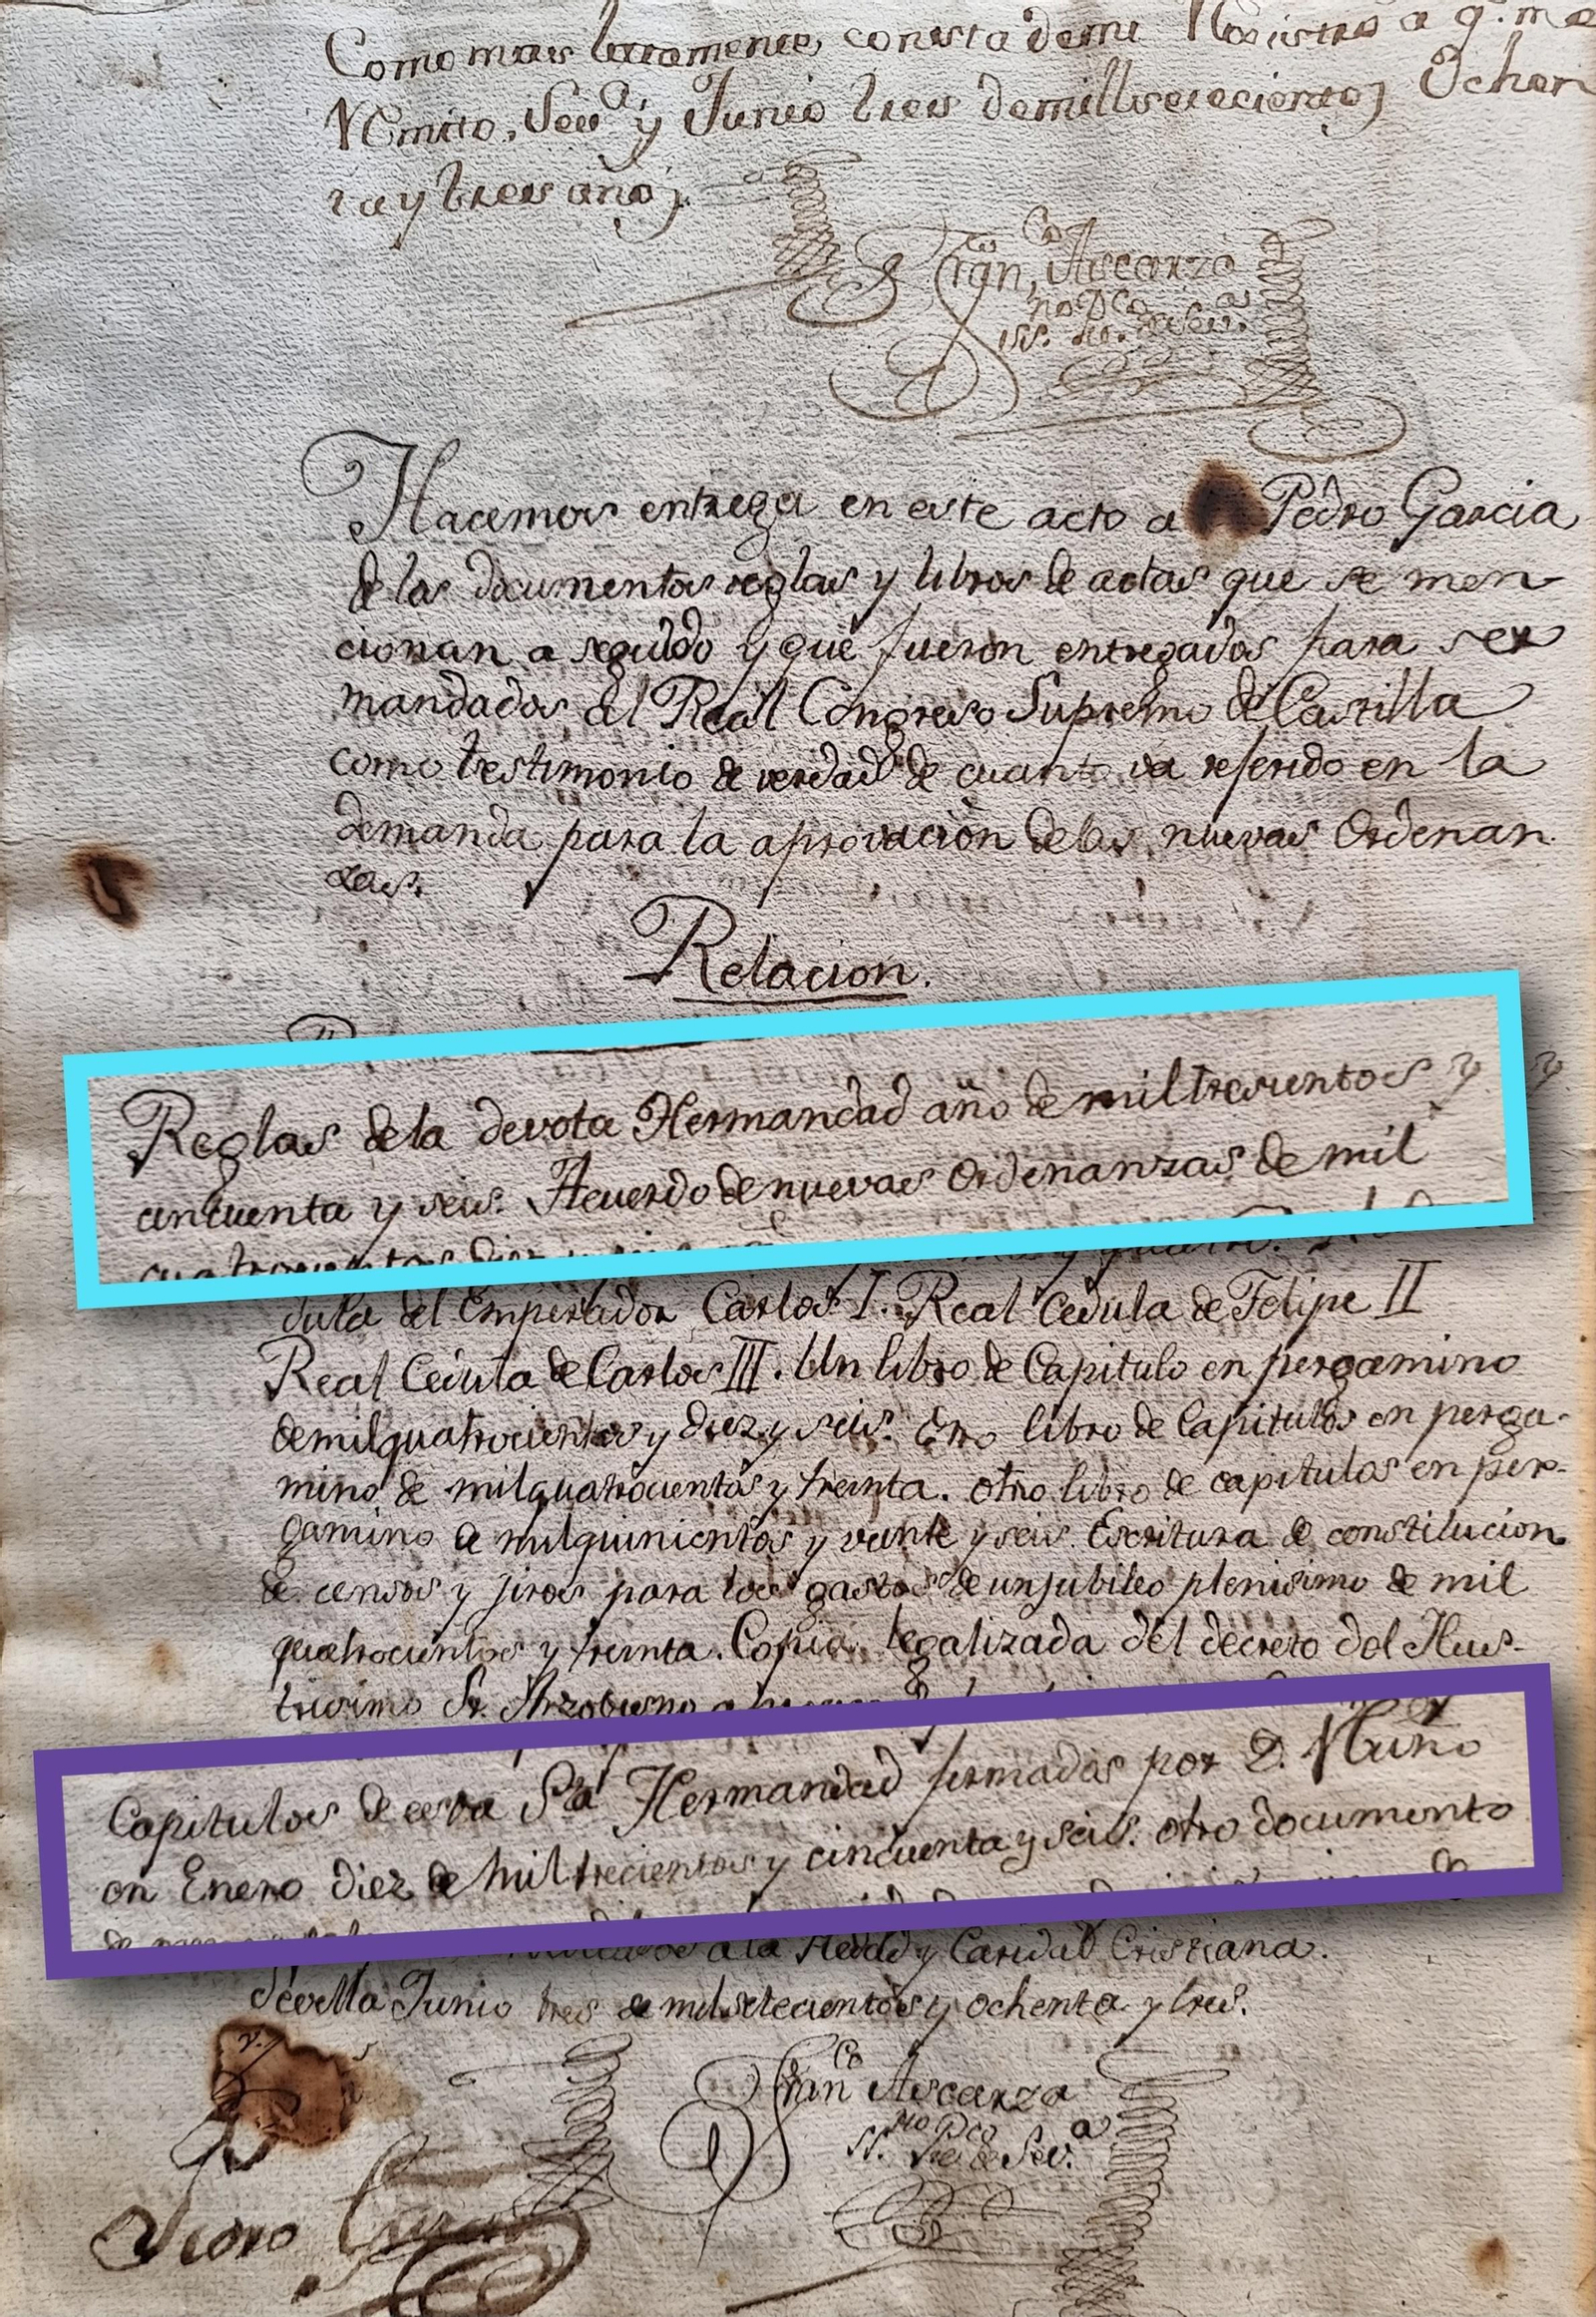 Como mas largamente, consta demi Registro a q.e me
Remito, Sev.a y Junio tres demill setecientos Ochen
ta y tres años
Fran.co Ascarza
Hacemos entrega en este acto a Pedro Garcia
de los documentos reglas y libros de actas que se men
cionan a seguido y que fueron entregados para ser
mandados al Real Congreso Supremo de Castilla
como testimonio de verdad de cuanto va referido en la
demanda para la aprovacion delas nuevas Ordenan
zas.
Relacion.
Reglas dela devota Hermandad año de mil trescientos y
cincuenta y seis. Acuerdo de nuevas Ordenanzas de mil
cuatrocientos diez
dula del Emperador Carlos I. Real Cedula de Felipe II
Real Cedula de Carlos III. Un libro de Capitulo en pergamino
demilquatrocientos y diez y seis. Otro libro de Capitulos en perga-
mino de milquatrocientos y treinta. Otro libro de capitulos en per-
gamino de milquinientos y veinte y seis. Escritura de constitucion
de censos y juros para los gastos de un jubileo plenisimo de mil
quatrocientos y treinta. Copia legalizada del decreto del Ilus-
trisimo Sr. Arzobispo
Capitulos de esta Sta Hermandad firmadas por D. Nuño
en Enero diez de mil trecientos y cincuenta y seis. otro documento
a la Piedad y Caridad Cristiana.
Sevilla Junio tres de mil setecientos y ochenta y tres.
Fran.co Ascarza
Pedro Garcia